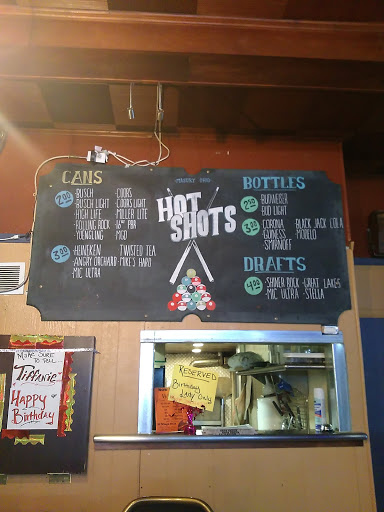 CANS
2.00
-BUSCH
-BUSCH LIGHT
-HIGH LIFE
-ROLLING ROCK
-YUENGLING
-COORS
-COORS LIGHT
-MILLER LITE
-16oz PBR
-MGD
3.00
-HEINEKEN
-ANGRY ORCHARD
-MIC ULTRA
-TWISTED TEA
-MIKE'S HARD
HOT
SHOTS
BOTTLES
BUDWEISER
BUD LIGHT
CORONA
GUINESS
SMIRNOFF
BLACK JACK COLA
MODELO
DRAFTS
4.00
-SHINER BOCK
-MIC ULTRA
-GREAT LAKES
-STELLA
MAKE SURE TO
TELL
TIFFANIE
HAPPY
Birthday
RESERVED
Birthday
Lady Only